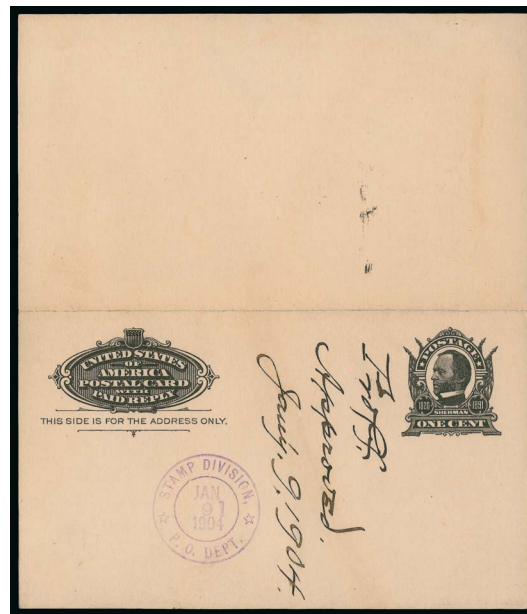 UNITED STATES
OF
AMERICA
POSTAL CARD
WITH
PAID REPLY
THIS SIDE IS FOR THE ADDRESS ONLY.
POSTAGE
1820 1891
SHERMAN
ONE CENT
Approved.
Jany. 9, 1904.
STAMP DIVISION,
JAN
9
1904
P. O. DEPT.